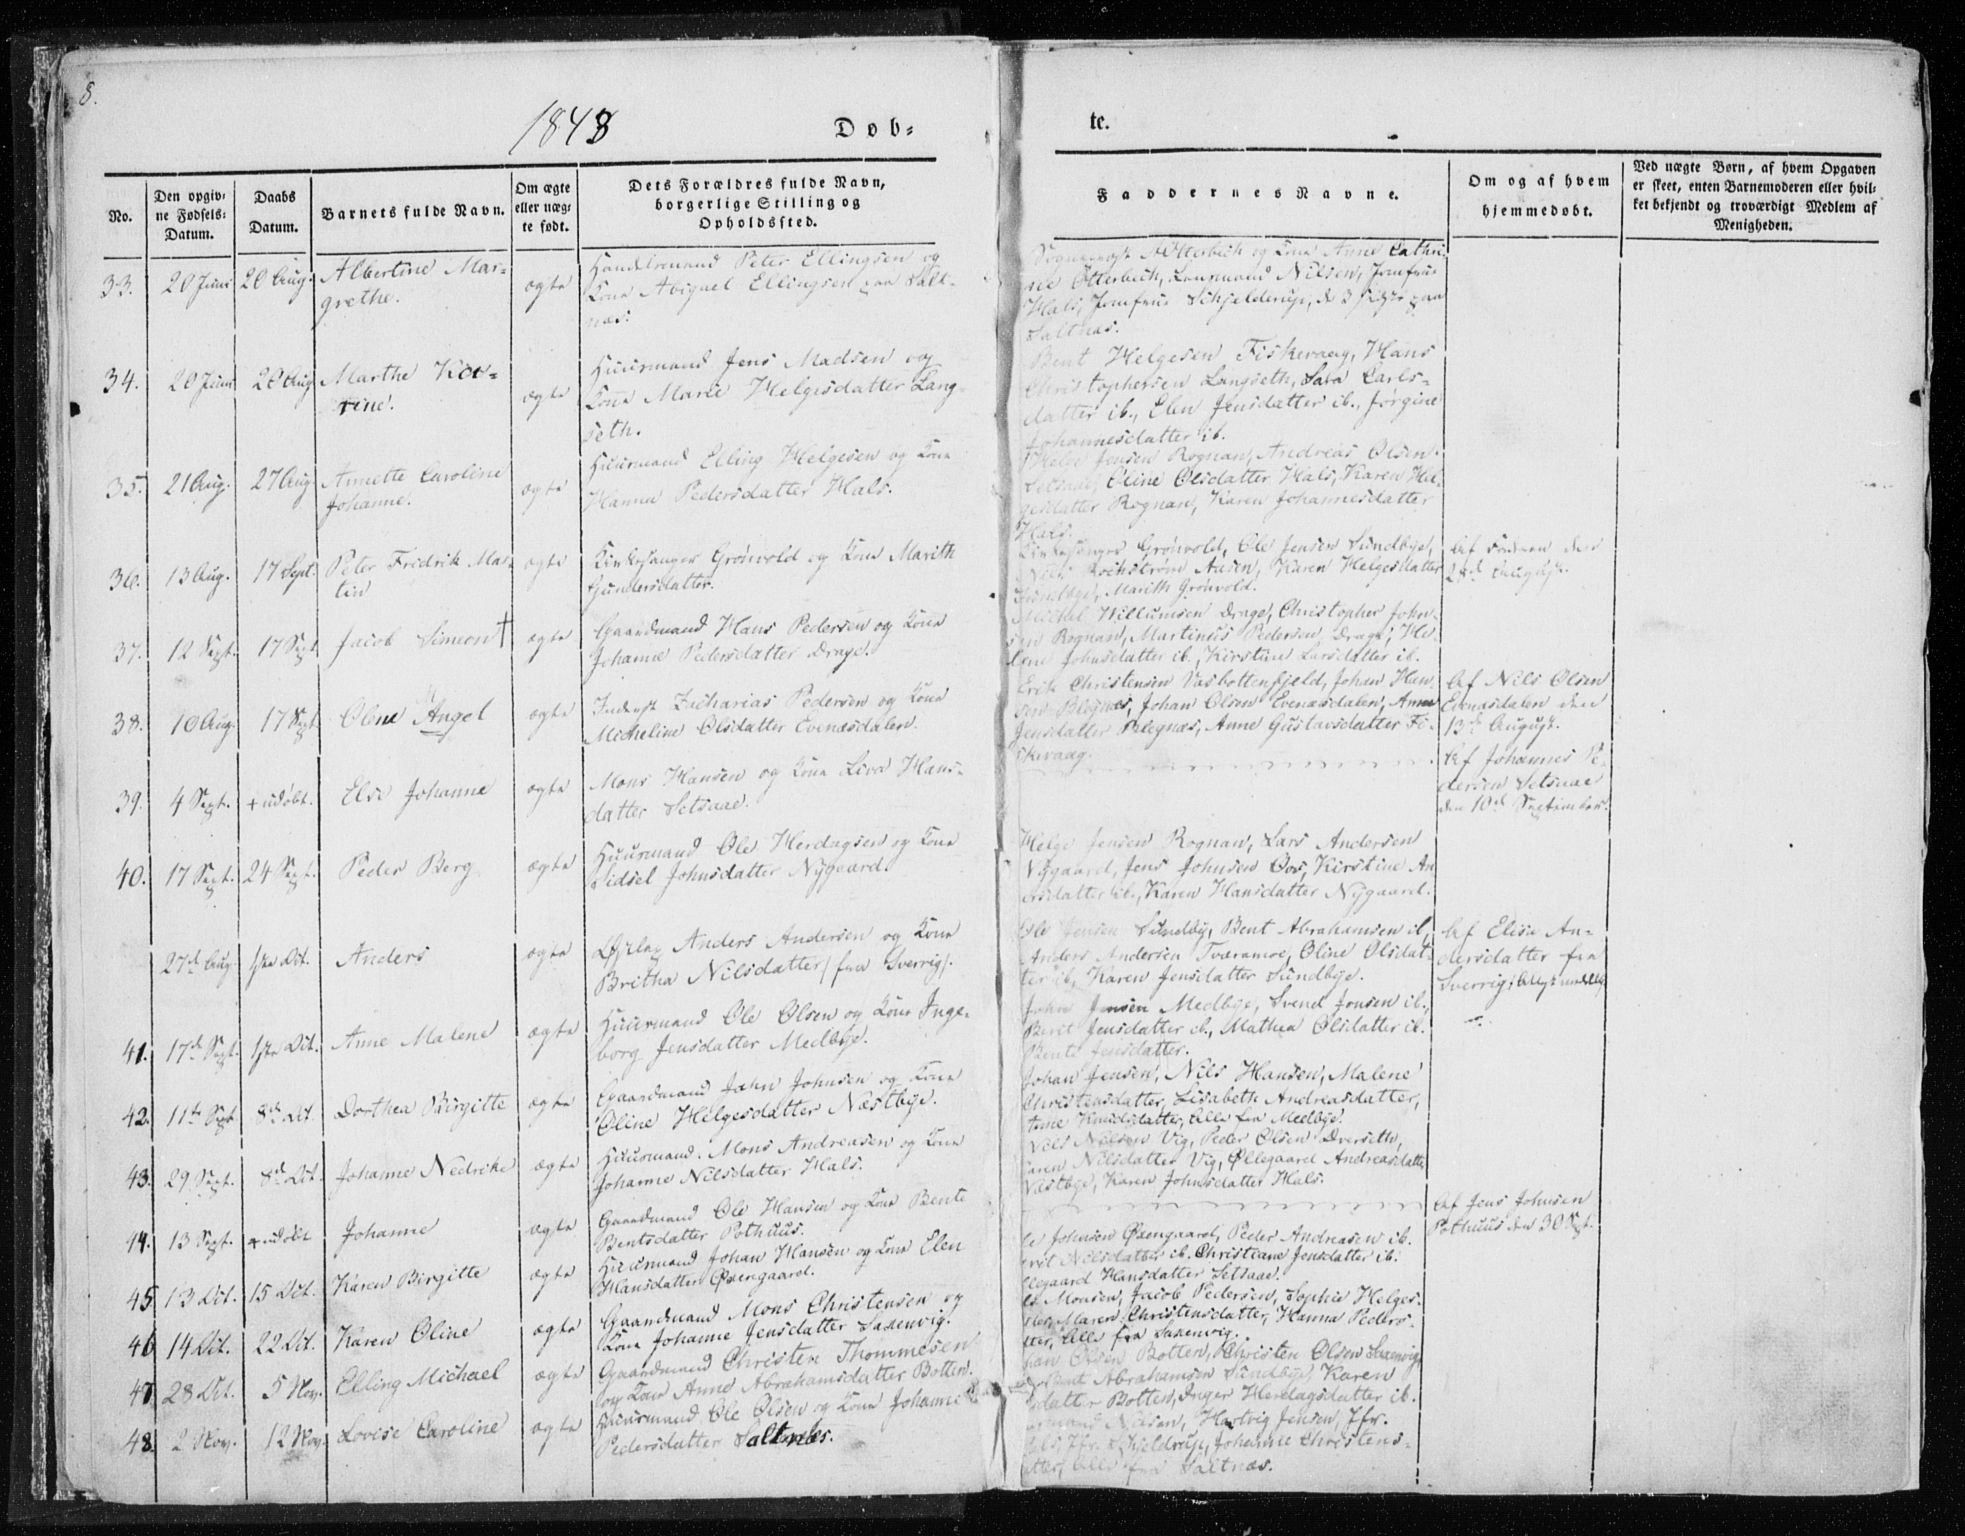 8.
1848
Døb=
te.
No.
Den opgiv=
ne Fødsels=
Datum.
Daabs
Datum.
Barnets fulde Navn.
Om ægte
eller uæg=
te født.
Dets Forældres fulde Navn,
borgerlige Stilling og
Opholdssted.
Faddernes Navne.
Om og af hvem
hjemmedøbt.
Ved uægte Børn, af hvem Opgaven
er skeet, enten Barnemoderen eller hvil=
ket bekjendt og troværdigt Medlem af
Menigheden.
33. 20 Juni 20 Aug. Albertine Mar=
grethe. ægte
Handelsmand Peter Ellingsen og
Kone Abigael Ellingsen paa Salt=
næs.
Otterbech og Kone Anne Cathri=
ne Otterbech, Lensmand Nilsen, Jomfrue
Hals, Jomfrue Schjelderup, paa
Saltnæs.
34. 20 Juni 20 Aug. Marthe
ægte
Huusmand Jens Madsen og
Kone Marie Helgesdatter Lang=
seth.
Bent Helgesen Fiskevaag, Hans
Christophersen Langseth, Sara Carls=
datter ib., Elen Jensdatter ib., Jørgine
Johannesdatter ib.
35. 21 Aug. 27 Aug. Annette Caroline
Johanne. ægte
Huusmand Elling Helgesen og Kone
Hanna Pedersdatter Hals.
Helge Jensen Rognan, Andreas Olsen
Setsaae, Oline Olsdatter Hals, Karen Hel=
gesdatter Rognan, Karen Johannesdatter
Hals.
36. 13 Aug. 17 Sept. Peter Fridrik Mar=
tin ægte
Kirkesanger Grønvold og Kone Marith
Gundersdatter.
Kirkesanger Grønvold, Ole Jensen Sundbye,
Nils Karen Helgesdatter
Sundbye, Marith Grønvold.
Af Faderen den
28de August.
37. 12 Sept. 17 Sept. Jacob Simeon † ægte
Gaardmand Hans Pedersen og Kone
Johanne Pedersdatter Drage.
Michel Willumsen Drage, Christopher John=
sen Rognan, Martinus Pedersen Drage, He=
lene Johnsdatter ib., Kirstine Larsdatter ib.
38. 10 Aug. 17 Sept. Olene Angel ægte
Inderst Zacharias Pedersen og Kone
Micheline Olsdatter Evenæsdalen.
Erik Christensen Vasbottenfjeld, Johan Han=
sen Bleignæs, Johan Olsen Evenæsdalen, Anne
Jensdatter Bleignæs, Anne Gustavsdatter Fi=
skevaag.
Af Nils Olsen
Evenæsdalen den
13de August.
39. 4 Sept. + udøbt. Else Johanne ægte
Mons Hansen og Kone Liva Hans=
datter Setsaae.
Af Johannes Pe=
dersen Setsaae
den 10de September.
40. 17 Sept. 24 Sept. Peder Berg ægte
Huusmand Ole Herdagsen og Kone
Sidsel Johnsdatter Nygaard.
Helge Jensen Rognan, Lars Andersen
Nygaard, Jens Johnsen Bos, Kirstine An
ersdatter ib., Karen Hansdatter Nygaard.
27de Aug. 1ste Oct. Anders ægte
Anders Andersen og Kone
Britha Nilsdatter (fra Sverrig).
Ole Jensen Sundby, Bent Abrahamsen ib.
Anders Andersen Tværamoe, Oline Olsdat=
ter ib., Karen Jensdatter Sundbye.
Af Elisa An=
dersdatter fra
Sverrig,
41. 17de Sept. 1ste Oct. Anne Malene ægte
Huusmand Ole Olsen og Kone Inge=
borg Jensdatter Medbye.
John Jensen Medbye, Svend Jensen ib.,
Berit Jensdatter ib., Mathea Olsdatter ib.
Bente Jensdatter.
42. 11te Sept. 8de Oct. Dorthea Birgitte ægte
Gaardmand John Johnsen og Kone
Oline Helgesdatter Næstbye.
Johan Jensen, Nils Hansen, Malene
Christensdatter, Lisabeth Andreasdatter,
Anne Knudsdatter, Alle fra Medbye.
43. 29 Sept. 8de Oct. Johanne Nedrike ægte
Huusmand Mons Andreasen og Kone
Johanne Nilsdatter Hals.
Nils Nilsen Vig, Peder Olsen Dverseth,
Karen Nilsdatter Vig, Øllegaard Andreasdatter
Vastbye, Karen Johnsdatter Hals.
44. 13 Sept. + udøbt Johanne ægte
Gaardmand Ole Hansen og Kone Bente
Bentsdatter Pothuus.
Af Jens Johnsen
Pothuus den 30 Sept.
45 13 Oct. 15 Oct. Karen Birgitte ægte
Huusmand Johan Hansen og Kone Elen
Hansdatter Øxengaard.
Johnsen Øxengaard, Peder Andreasen ib.
Nilsdatter ib. Christiane Jensdatter ib.
Hansdatter Setsaae.
46 14 Oct. 22 Oct. Karen Oline ægte
Gaardmand Mons Christensen og
Kone Johanne Jensdatter Saxenvig.
Monsen, Jacob Pedersen, Sophie Helges=
Maren Christensdatter, Hanna Peders=
tter, Alle fra Saxenvig.
47 28 Oct. 5 Nov. Elling Michael ægte
Gaardmand Christen Thommesen
og Kone Anne Abrahamsdatter Botten.
Olsen Botten, Christen Olsen Saxenvig
Bent Abrahamsen Sundbye, Karen
sdatter Botten, Inger Herdagsdatter ib.
48. 2 Nov. 12 Nov. Lovise Caroline ægte
Huusmand Ole Olsen og Kone Johanne
Pedersdatter Saltnæs.
Nilsen, Hartvig Jensen, Jfr.
Hals, Jfr. Schjeldrup, Johanne Christens=
datter, Alle fra Saltnæs.